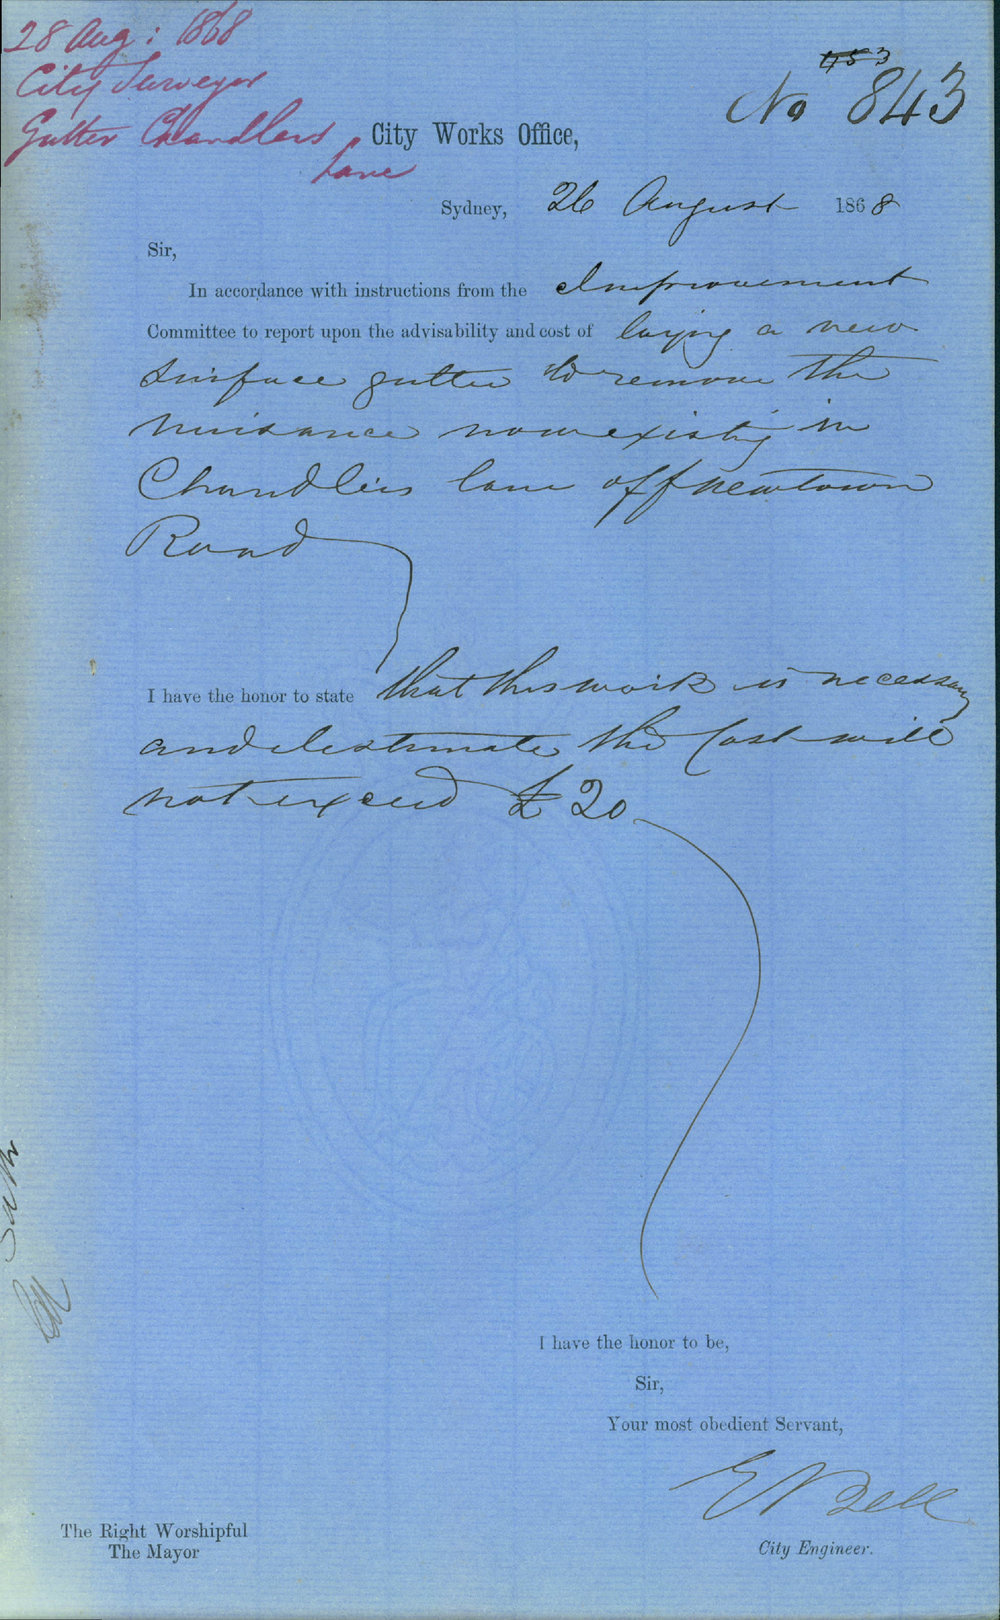 28 Aug: 1868
City Surveyor
Gutter Chandlers
Lane
453
No 843
City Works Office,
Sydney, 26 August 1868
Sir,
In accordance with instructions from the Improvement
Committee to report upon the advisability and cost of laying a new
surface gutter to remove the
nuisance now existing in
Chandlers lane off Newtown
Road
I have the honor to state that this work is necessary
and estimate the Cost will
not exceed £20
I have the honor to be,
Sir,
Your most obedient Servant,
E Bell
City Engineer.
The Right Worshipful
The Mayor